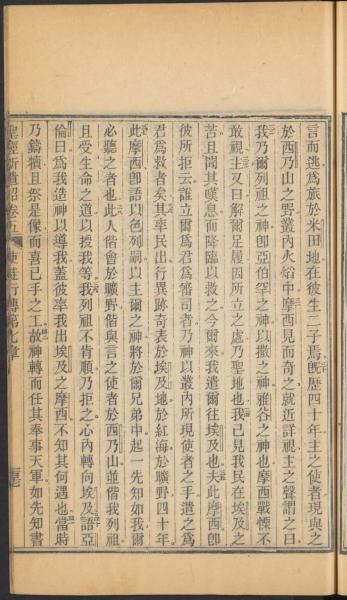 言而逃爲旅於米田地在彼生二子焉旣歷四十年主之使者現與之
於西乃山之野叢內火焰中摩西見而奇之就近詳視主之聲謂之曰
我乃爾列祖之神卽亞伯罕之神以撒之神雅谷之神也摩西戰慄不
敢視主又曰解爾足履因所立之處乃聖地也我已見我民在埃及之
苦且聞其嘆息而降臨以救之今爾來我遣爾往埃及也夫此摩西卽
彼所拒云誰立爾爲君爲審司者乃神以叢內所現使者之手遣之爲
君爲救者矣其率民出行異跡奇表於埃及地於紅海於曠野四十年
此摩西卽語以色列嗣以主爾之神將於爾兄弟中起一先知如我爾
必聽之者也此人偕會於曠野偕與言之使者於西乃山並偕我列祖
且受生命之道以授我等我列祖不肯順乃拒之心內轉向埃及語亞
倫曰爲我造神以導我蓋彼率我出埃及之摩西不知其何遇也當時
乃鑄犢且祭是像而喜已手之工故神轉而任其奉事天軍如先知書
聖經新遺詔卷五 使徒行傳 七章